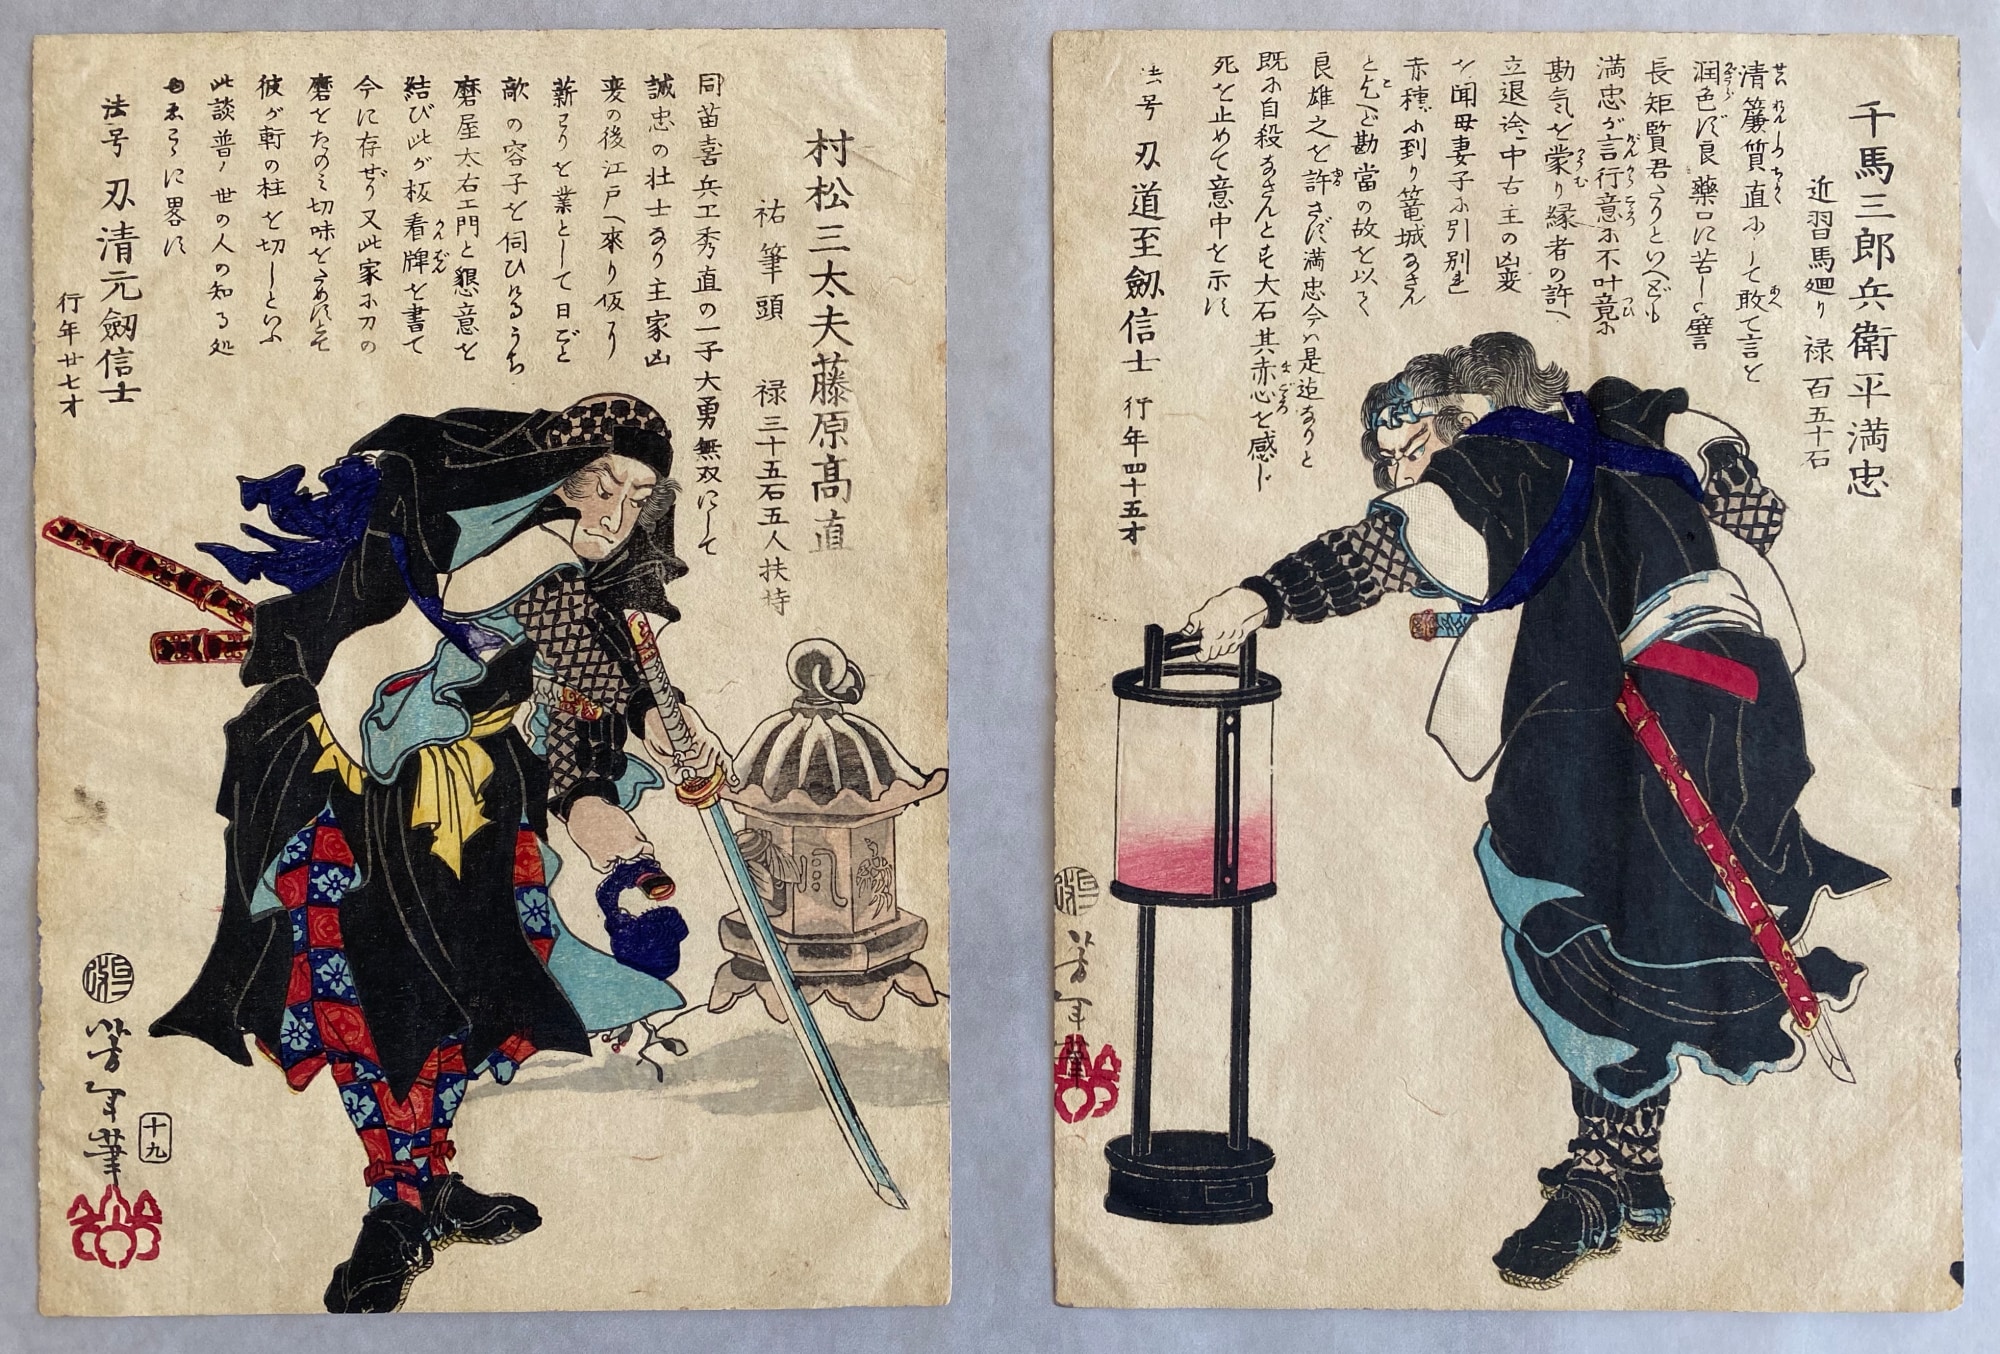 村松三太夫藤原髙直
祐筆頭　禄三十五石五人扶持
同苗喜兵エ秀直の一子大勇無双にして
誠忠の壮士なり主家凶
変の後江戸へ來り仮に
薪わりを業として日ごと
敵の容子を伺ひゐるうち
磨屋太右エ門と懇意を
結び此が板看牌を書て
今に存ぜり又此家に刀の
磨をたのみ切味をためすとて
彼が軒の柱を切しといふ
此談普く世の人の知る処
ゆゑこゝに畧す
法号　刃清元劔信士
行年廿七才
芳年筆
十九
千馬三郎兵衛平満忠
近習馬廻り　禄百五十石
清簾質直にして敢て言を
潤色ず良藥口に苦しと譬
長矩賢君たりといへども
満忠が言行意に不叶竟に
勘気を蒙り縁者の許へ
立退途中古主の凶変
を聞母妻子に引別れ
赤穂に到り篭城なさん
とんへど勘當の故を以て
良雄之を許さず満忠今は是迠なりと
既に自殺なさんとす大石其赤心を感じ
死を止めて意中を示す
法号　刃道至劔信士　行年四十五才
芳年筆